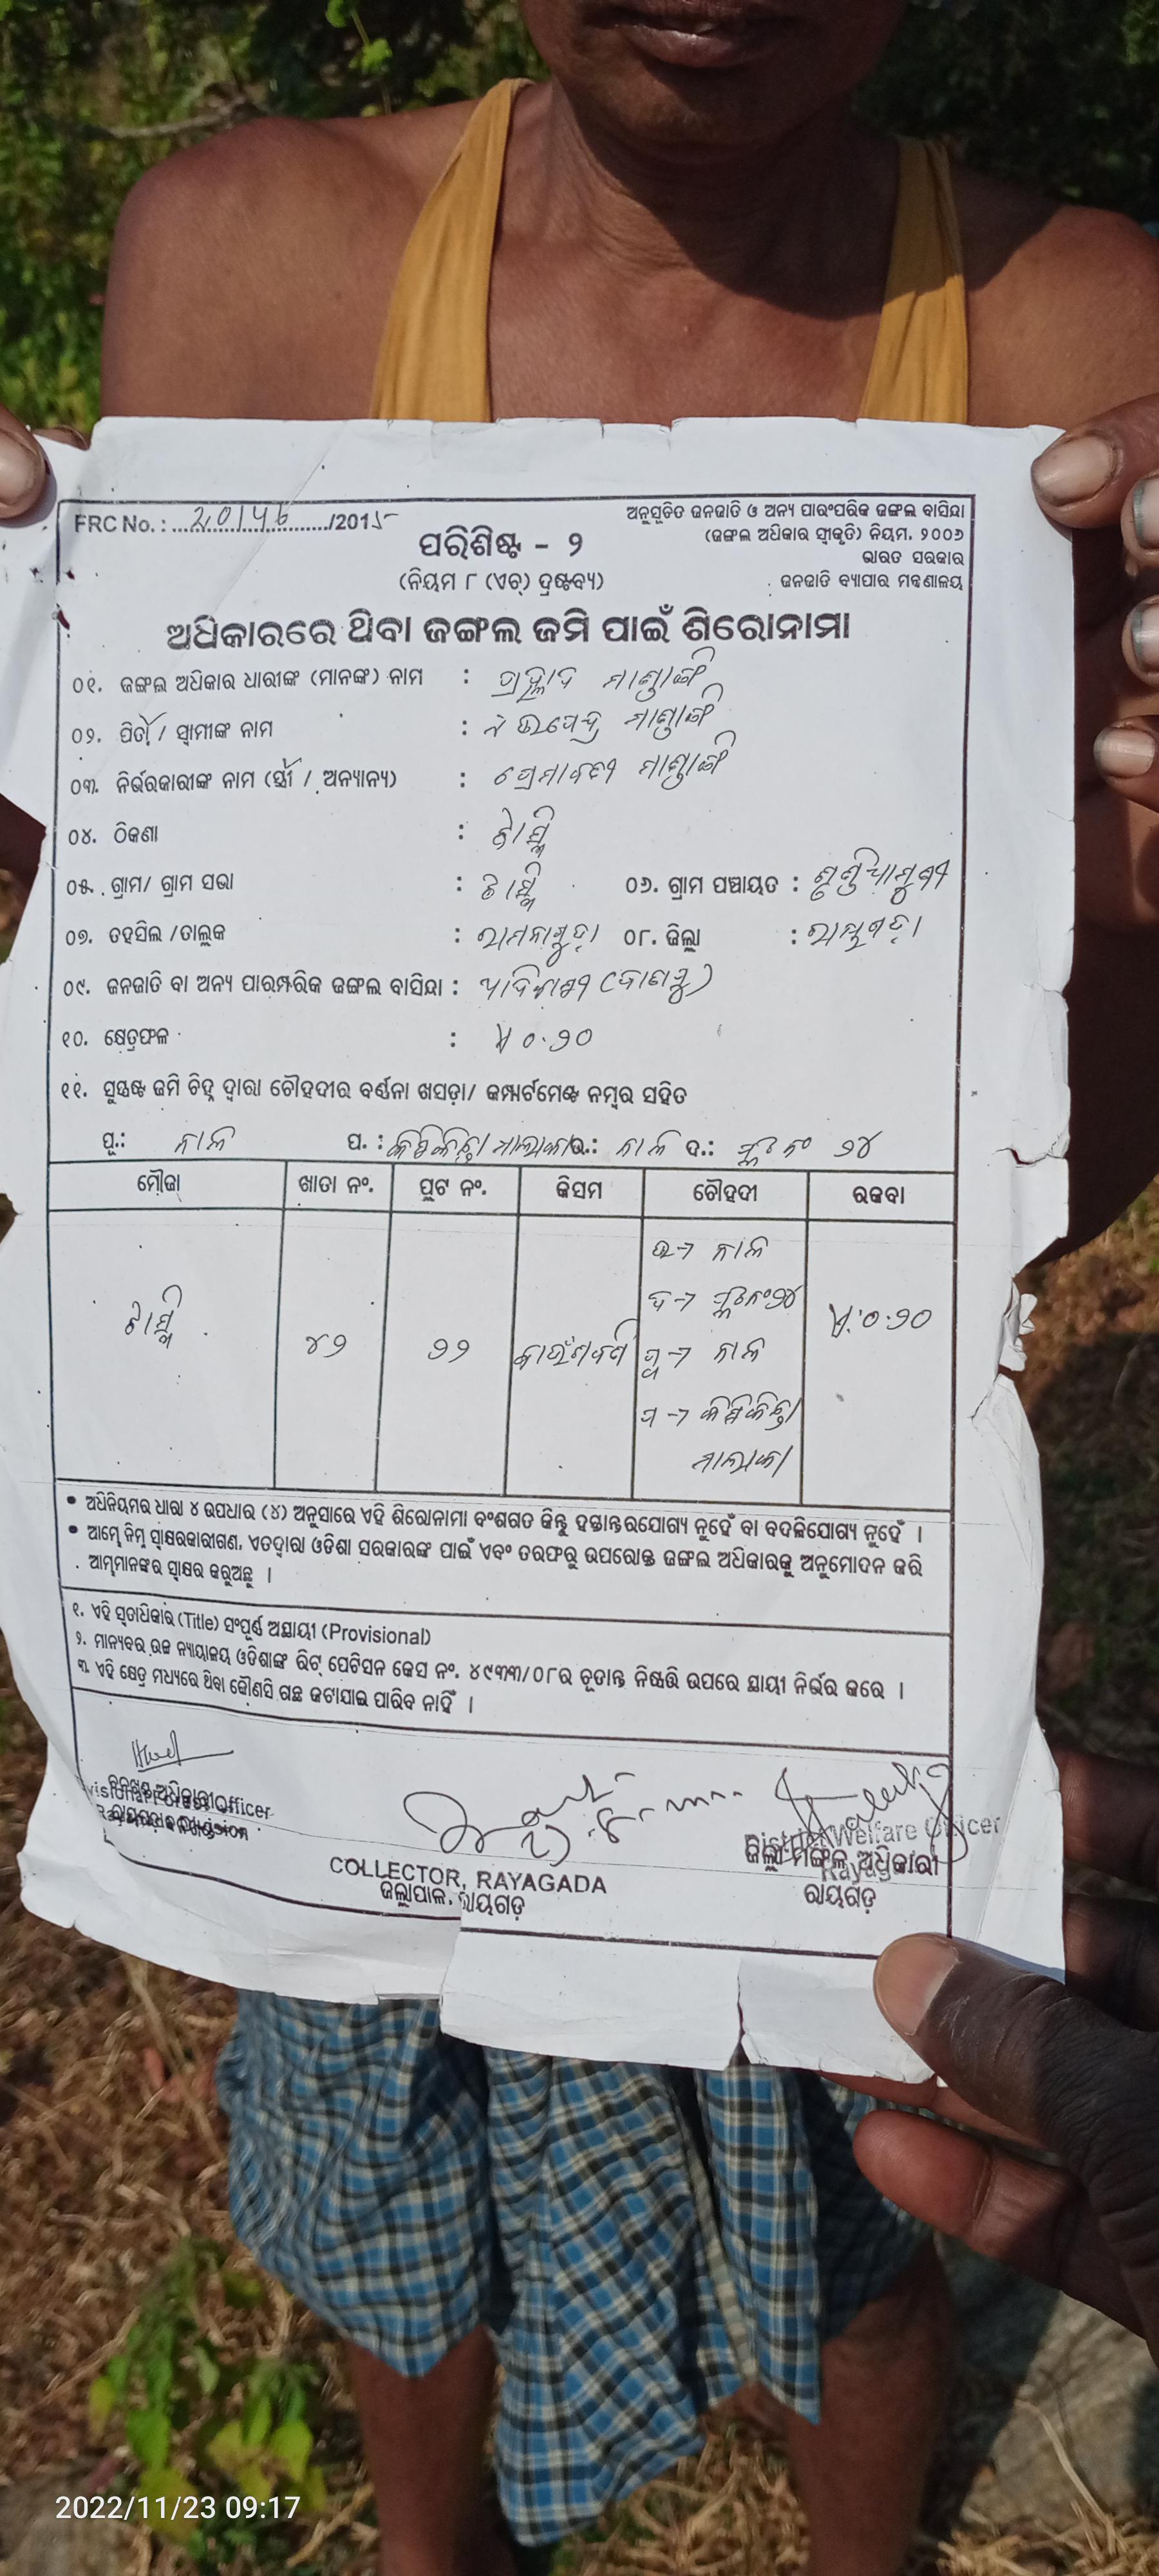 FRC No. : ...20146.../2015
ଅନୁସୂଚିତ ଜନଜାତି ଓ ଅନ୍ୟ ପାରଂପରିକ ଜଙ୍ଗଲ ବାସିନ୍ଦା
(ଜଙ୍ଗଲ ଅଧିକାର ସ୍ୱୀକୃତି) ନିୟମ, ୨୦୦୬
ଭାରତ ସରକାର
ଜନଜାତି ବ୍ୟାପାର ମନ୍ତ୍ରଣାଳୟ
ପରିଶିଷ୍ଟ - ୨
(ନିୟମ ୮ (ଏଚ୍) ଦ୍ରଷ୍ଟବ୍ୟ)
ଅଧିକାରରେ ଥିବା ଜଙ୍ଗଲ ଜମି ପାଇଁ ଶିରୋନାମା
୦୧. ଜଙ୍ଗଲ ଅଧିକାର ଧାରୀଙ୍କ (ମାନଙ୍କ) ନାମ : ପ୍ରହ୍ଲାଦ ମାଣ୍ଡାଙ୍ଗି
୦୨. ପିତା / ସ୍ୱାମୀଙ୍କ ନାମ : ମାଣ୍ଡାଙ୍ଗି
୦୩. ନିର୍ଭରକାରୀଙ୍କ ନାମ (ସ୍ତ୍ରୀ / ଅନ୍ୟାନ୍ୟ) : ପ୍ରେମାବତୀ ମାଣ୍ଡାଙ୍ଗି
୦୪. ଠିକଣା :
୦୫. ଗ୍ରାମ/ ଗ୍ରାମ ସଭା : ୦୬. ଗ୍ରାମ ପଞ୍ଚାୟତ :
୦୭. ତହସିଲ /ତାଲୁକ : ରାମନାଗୁଡ଼ା ୦୮. ଜିଲ୍ଲା : ରାୟଗଡ଼ା
୦୯. ଜନଜାତି ବା ଅନ୍ୟ ପାରମ୍ପରିକ ଜଙ୍ଗଲ ବାସିନ୍ଦା : ଆଦିବାସୀ
୧୦. କ୍ଷେତ୍ରଫଳ : ଏ ୦.୨୦
୧୧. ସୁସ୍ପଷ୍ଟ ଜମି ଚିହ୍ନ ଦ୍ୱାରା ଚୌହଦୀର ବର୍ଣ୍ଣନା ଖସଡ଼ା/ କମ୍ପାର୍ଟମେଣ୍ଟ ନମ୍ବର ସହିତ
ପୂ.: ନାଳ ପ. : ଉ.: ନାଳ ଦ.: ପ୍ଲଟ ନଂ ୨୪
ମୌଜା ଖାତା ନଂ. ପ୍ଲଟ ନଂ. କିସମ ଚୌହଦୀ ରକବା
ଉ→ ନାଳ
ଦ→ ପ୍ଲଟ ନଂ ୨୪
୪୨ ୨୨ ପୂ→ ନାଳ ଏ.୦.୨୦
ପ→
• ଅଧିନିୟମର ଧାରା ୪ ଉପଧାର (୪) ଅନୁସାରେ ଏହି ଶିରୋନାମା ବଂଶଗତ କିନ୍ତୁ ହସ୍ତାନ୍ତରଯୋଗ୍ୟ ନୁହେଁ ବା ବଦଳିଯୋଗ୍ୟ ନୁହେଁ ।
• ଆମ୍ଭେ ନିମ୍ନ ସ୍ୱାକ୍ଷରକାରୀଗଣ, ଏତଦ୍ୱାରା ଓଡିଶା ସରକାରଙ୍କ ପାଇଁ ଏବଂ ତରଫରୁ ଉପରୋକ୍ତ ଜଙ୍ଗଲ ଅଧିକାରକୁ ଅନୁମୋଦନ କରି
ଆମ୍ଭମାନଙ୍କର ସ୍ୱାକ୍ଷର କରୁଅଛୁ ।
୧. ଏହି ସ୍ୱତାଧିକାର (Title) ସଂପୂର୍ଣ୍ଣ ଅସ୍ଥାୟୀ (Provisional)
୨. ମାନ୍ୟବର ଉଚ୍ଚ ନ୍ୟାୟାଳୟ ଓଡିଶାଙ୍କ ରିଟ୍ ପେଟିସନ କେସ ନଂ. ୪୯୩୩/୦୮ର ଚୂଡାନ୍ତ ନିଷ୍ପତ୍ତି ଉପରେ ସ୍ଥାୟୀ ନିର୍ଭର କରେ ।
୩. ଏହି କ୍ଷେତ୍ର ମଧ୍ୟରେ ଥିବା କୌଣସି ଗଛ କଟାଯାଇ ପାରିବ ନାହିଁ ।
ବନଖଣ୍ଡ ଅଧିକାରୀ
Officer
Division
COLLECTOR, RAYAGADA
ଜିଲ୍ଲାପାଳ, ରାୟଗଡ଼
District Welfare Officer
ଜିଲ୍ଲା ମଙ୍ଗଳ ଅଧିକାରୀ
ରାୟଗଡ଼
2022/11/23 09:17